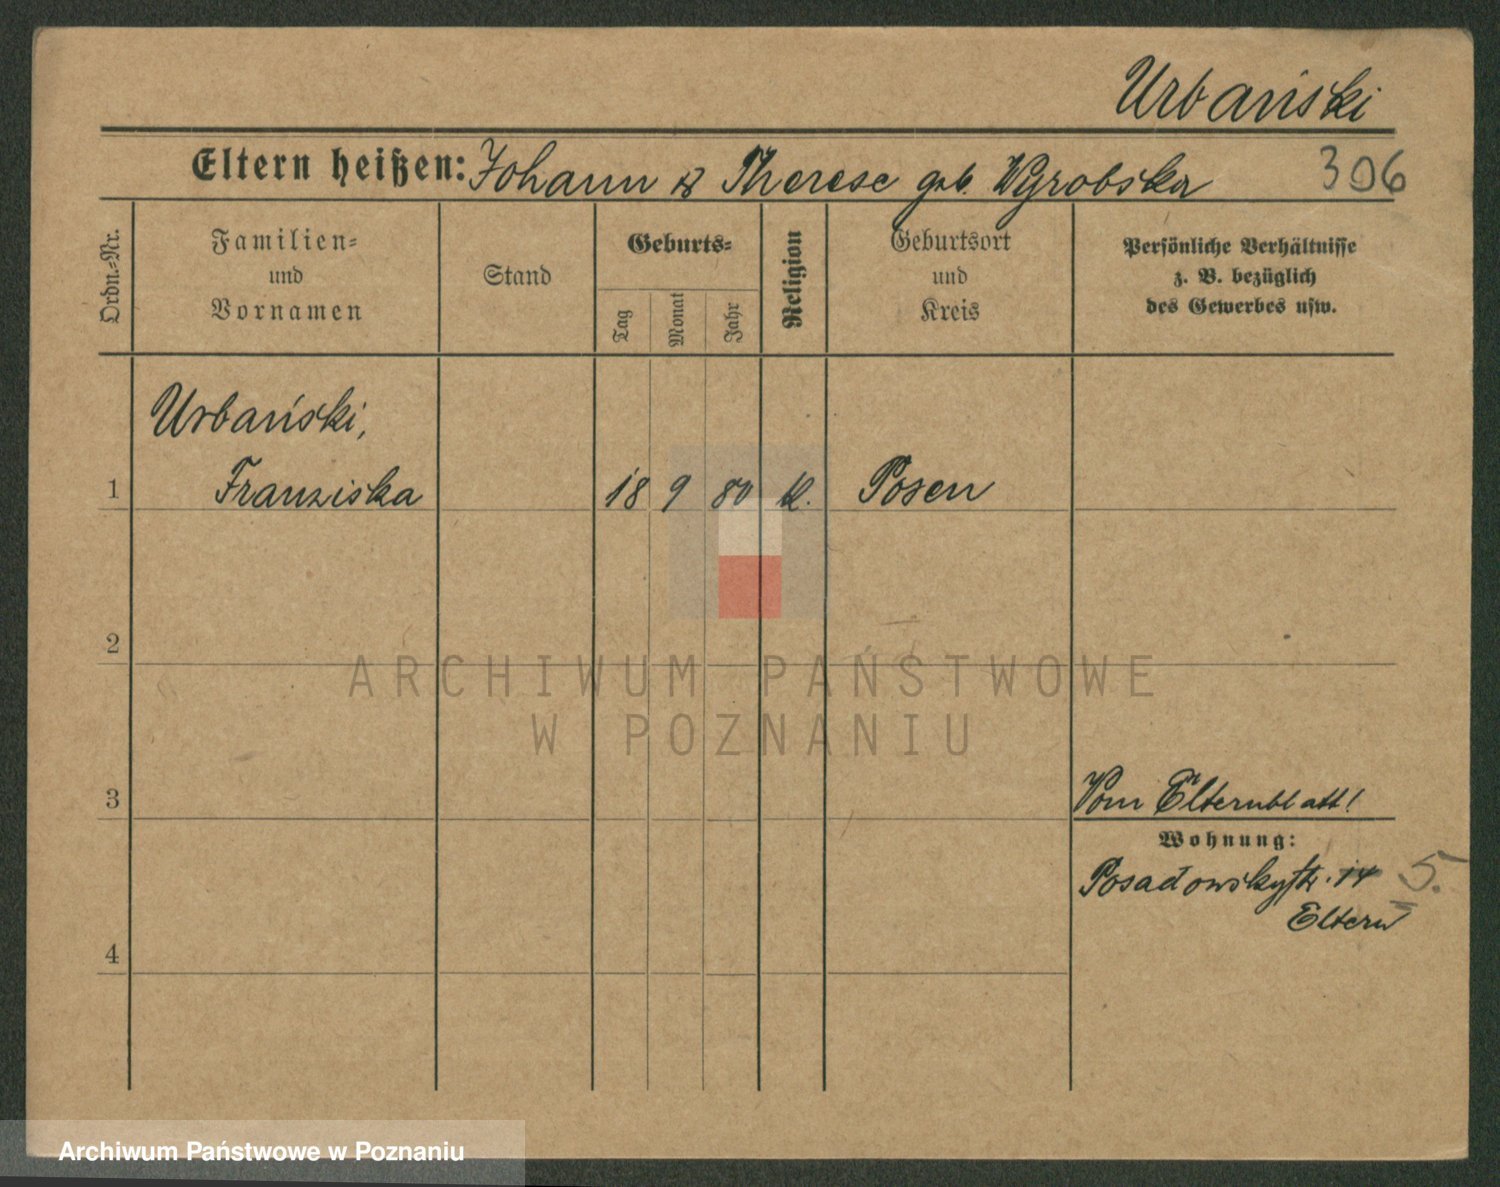 Urbański
Eltern heißen: Johann & Therese geb. Wyrobska
306
Ordn.=Nr.
Familien=
und
Vornamen
Stand
Geburts=
Tag
Monat
Jahr
Religion
Geburtsort
und
Kreis
Persönliche Verhältnisse
z. B. bezüglich
des Gewerbes usw.
Urbański,
1 Franziska 18 9 80 k. Posen
2
ARCHIWUM PAŃSTWOWE
W POZNANIU
3 Vom Elternblatt!
Wohnung:
Posadowskystr. 14 5.
Eltern
4
Archiwum Państwowe w Poznaniu